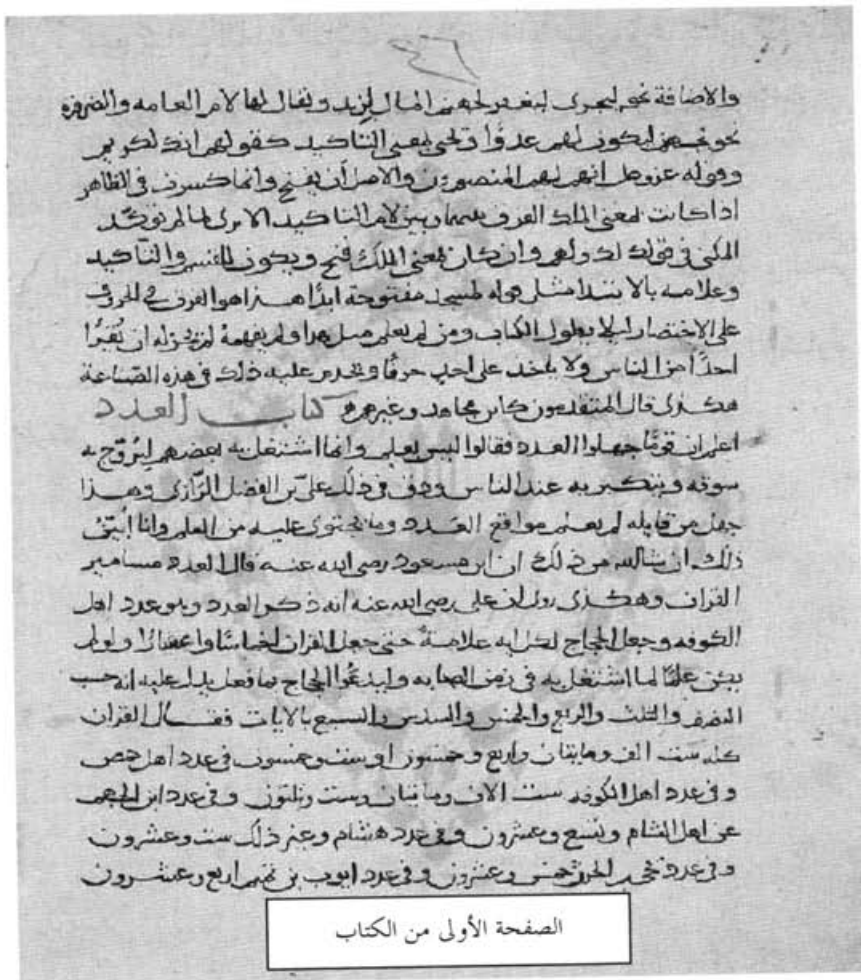 ٤٦
والاضافة نحو ليجرى لبغد من المال لزيد ويقال لها لام العامه والضروره
نحو ليكون لهم عدوا وتجى لمعنى التاكيد كقولهم انك لكريم
وقوله عز وجل انهم لهم المنصورون والاصل أن يفتح وانما كسرت في الظاهر
اذا كانت لمعنى الملك الفرق بينها وبين لام التاكيد الا ترى لما لم توكد
المكنى في قولك لك ولهم وان كان لمعنى الملك فتح ويكون للقسم والتاكيد
وعلامة بالابتدا مثل قوله لمسجد مفتوحة ابدًا هذا هو الفرق في الحروف
على الاختصار ليلا يطول الكتاب ومن لم يعلم مثل هذا ولم يفهمه لم يجز له ان يُقرا
احدًا من الناس ولا ياخذ على احد حرفًا ويحرم عليه ذلك في هذه الصّناعة
هكذى قال المتقدمون كابن مجاهد وغيره كتاب العدد
اعلم ان قومًا جهلوا العدد فقالوا ليس بعلم وانما اشتغل به بعضهم ليُروّج به
سوقه ويتكبر به عند الناس في ذلك على بن الفضل الرّازى وهذا
جهل من قايله لم يعلم مواقع العدد وما يحتوى عليه من العلم وانا أبيّن
ذلك ان شا الله من ذلك ان ابن مسعود رضى الله عنه قال العدد مسامير
القران وهكذى روى ان على رضى الله عنه انه ذكر العدد وهو عدد اهل
الكوفه وجعل الحجاج لكل ايه علامةً حتى جعل القران اخماسًا واعشارًا ولو لم
يكن علمًا لما اشتغل به في زمن الصحابه الحجاج بما فعل يدل عليه انه حسب
النصف والثلث والربع والخمس والسدس والسبع بالايات فقال القران
كله ست الف ومايتان واربع وخمسون او ست وخمسون في عدد اهل حمص
وفي عدد اهل الكوفه ست الاف ومايتان وست وثلثون وفي عدد ابن الجهم
عن اهل الشام وتسع وعشرون وفي عدد هشام وعنر ذلك ست وعشرون
وفي عدد خمس وعشرون وفي عدد ايوب بن تميم اربع وعشرون
الصفحة الأولى من الكتاب